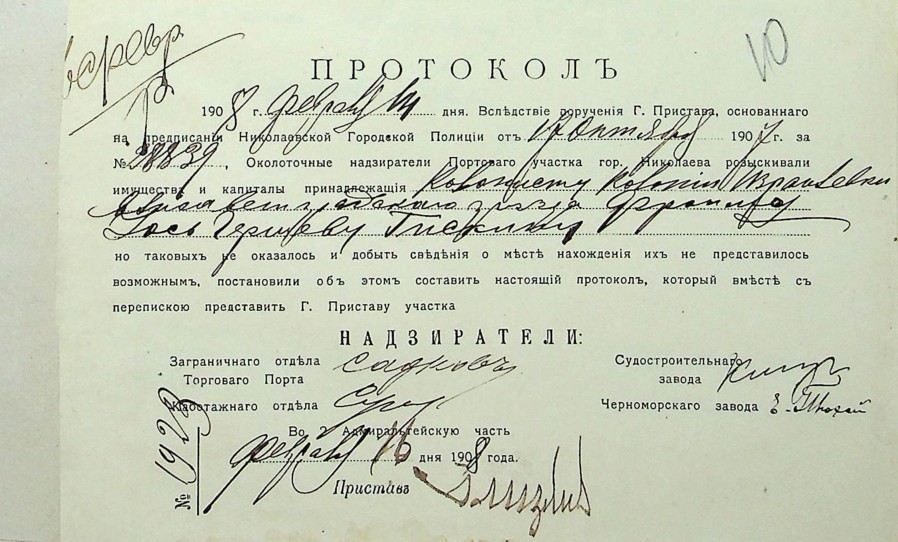 10
ПРОТОКОЛЪ
1908 г. Февраля 14 дня. Вслѣдствіе порученія Г. Пристава, основаннаго
на предписаніи Николаевской Городской Полиціи отъ 17 Октября 1907 г. за
№ 28839, Околоточные надзиратели Портоваго участка гор. Николаева розыскивали
имущества и капиталы принадлежащія колонисту колоніи Израилевки
Елисаветградскаго уѣзда
но таковыхъ не оказалось и добыть свѣдѣнія о мѣстѣ нахожденія ихъ не представилось
возможнымъ, постановили объ этомъ составить настоящій протоколъ, который вмѣстѣ съ
перепискою представить Г. Приставу участка
НАДЗИРАТЕЛИ:
Заграничнаго отдѣла Садковъ
Торговаго Порта
Судостроительнаго
завода
Каботажнаго отдѣла
Черноморскаго завода
Во 2 Адмиралтейскую часть
Февраля 16 дня 1908 года.
Приставъ
№ 1923